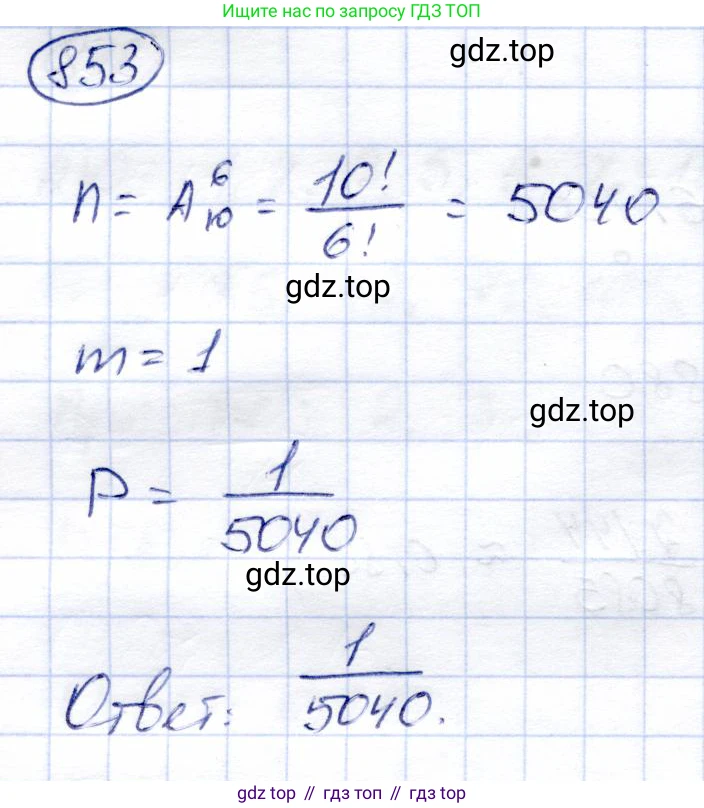 Ищите нас по запросу ГДЗ ТОП
853
gdz.top
n = A₁₀⁶ = 10!/6! = 5040
gdz.top
m = 1
gdz.top
P = 1/5040
gdz.top
Ответ: 1/5040.
gdz.top // гдз топ // gdz.top